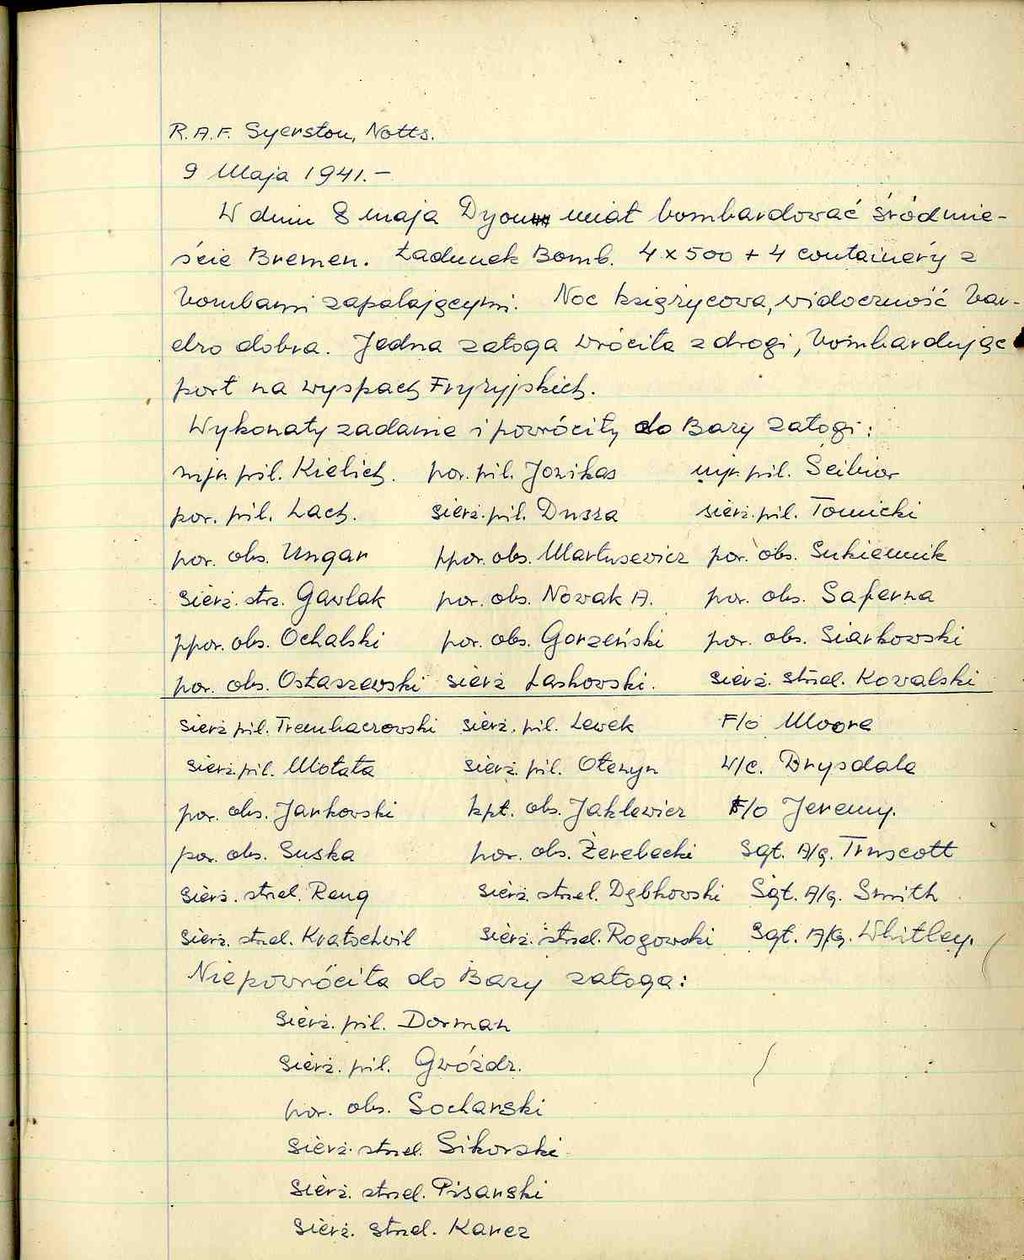 R.A.F. Syerston, Notts.
9 Maja 1941.-
W dniu 8 maja Dyon miał bombardować śródmie-
ście Bremen. Ładunek Bomb. 4 x 500 + 4 containery z
bombami zapalającymi. Noc księżycowa, widoczność bar-
dzo dobra. Jedna załoga wróciła z drogi, bombardując
port na wyspach Fryzyjskich.
Wykonały zadanie i powróciły do Bazy załogi:
mjr. pil. Kielich. por. pil. Jozikas mjr. pil. Ścibior
por. pil. Lach. sierż. pil. Dusza sierż. pil. Tomicki
por. obs. Ungar ppor. obs. Martusewicz por. obs. Sukiennik
sierż. strz. Gawlak por. obs. Nowak A. por. obs. Saferna
ppor. obs. Ochalski por. obs. Gorzeński por. obs. Siarkowski
por. obs. Ostaszewski sierż Laskowski. sierż. strzel. Kowalski
sierż pil. Trembaczowski sierż. pil. Lewek F/o Moore
sierż. pil. Motała sierż. pil. Olenyn W/c. Drysdale
por. obs. Jankowski kpt. obs. Jaklewicz F/o Jeremy.
por. obs. Suska por. obs. Żerebecki Sgt. A/g. Truscott
sierż. strzel. Reng sierż. strzel. Dębkowski Sgt. A/g. Smith
sierż. strzel. Kratochwil sierż. strzel. Rogowski Sgt. A/G. Whitley.
Niepowróciła do Bazy załoga:
sierż. pil. Dorman
sierż. pil. Gwóźdź.
por. obs. Socharski
sierż. strzel. Sikorski
sierż. strzel. Pisarski
sierż. strzel. Karcz